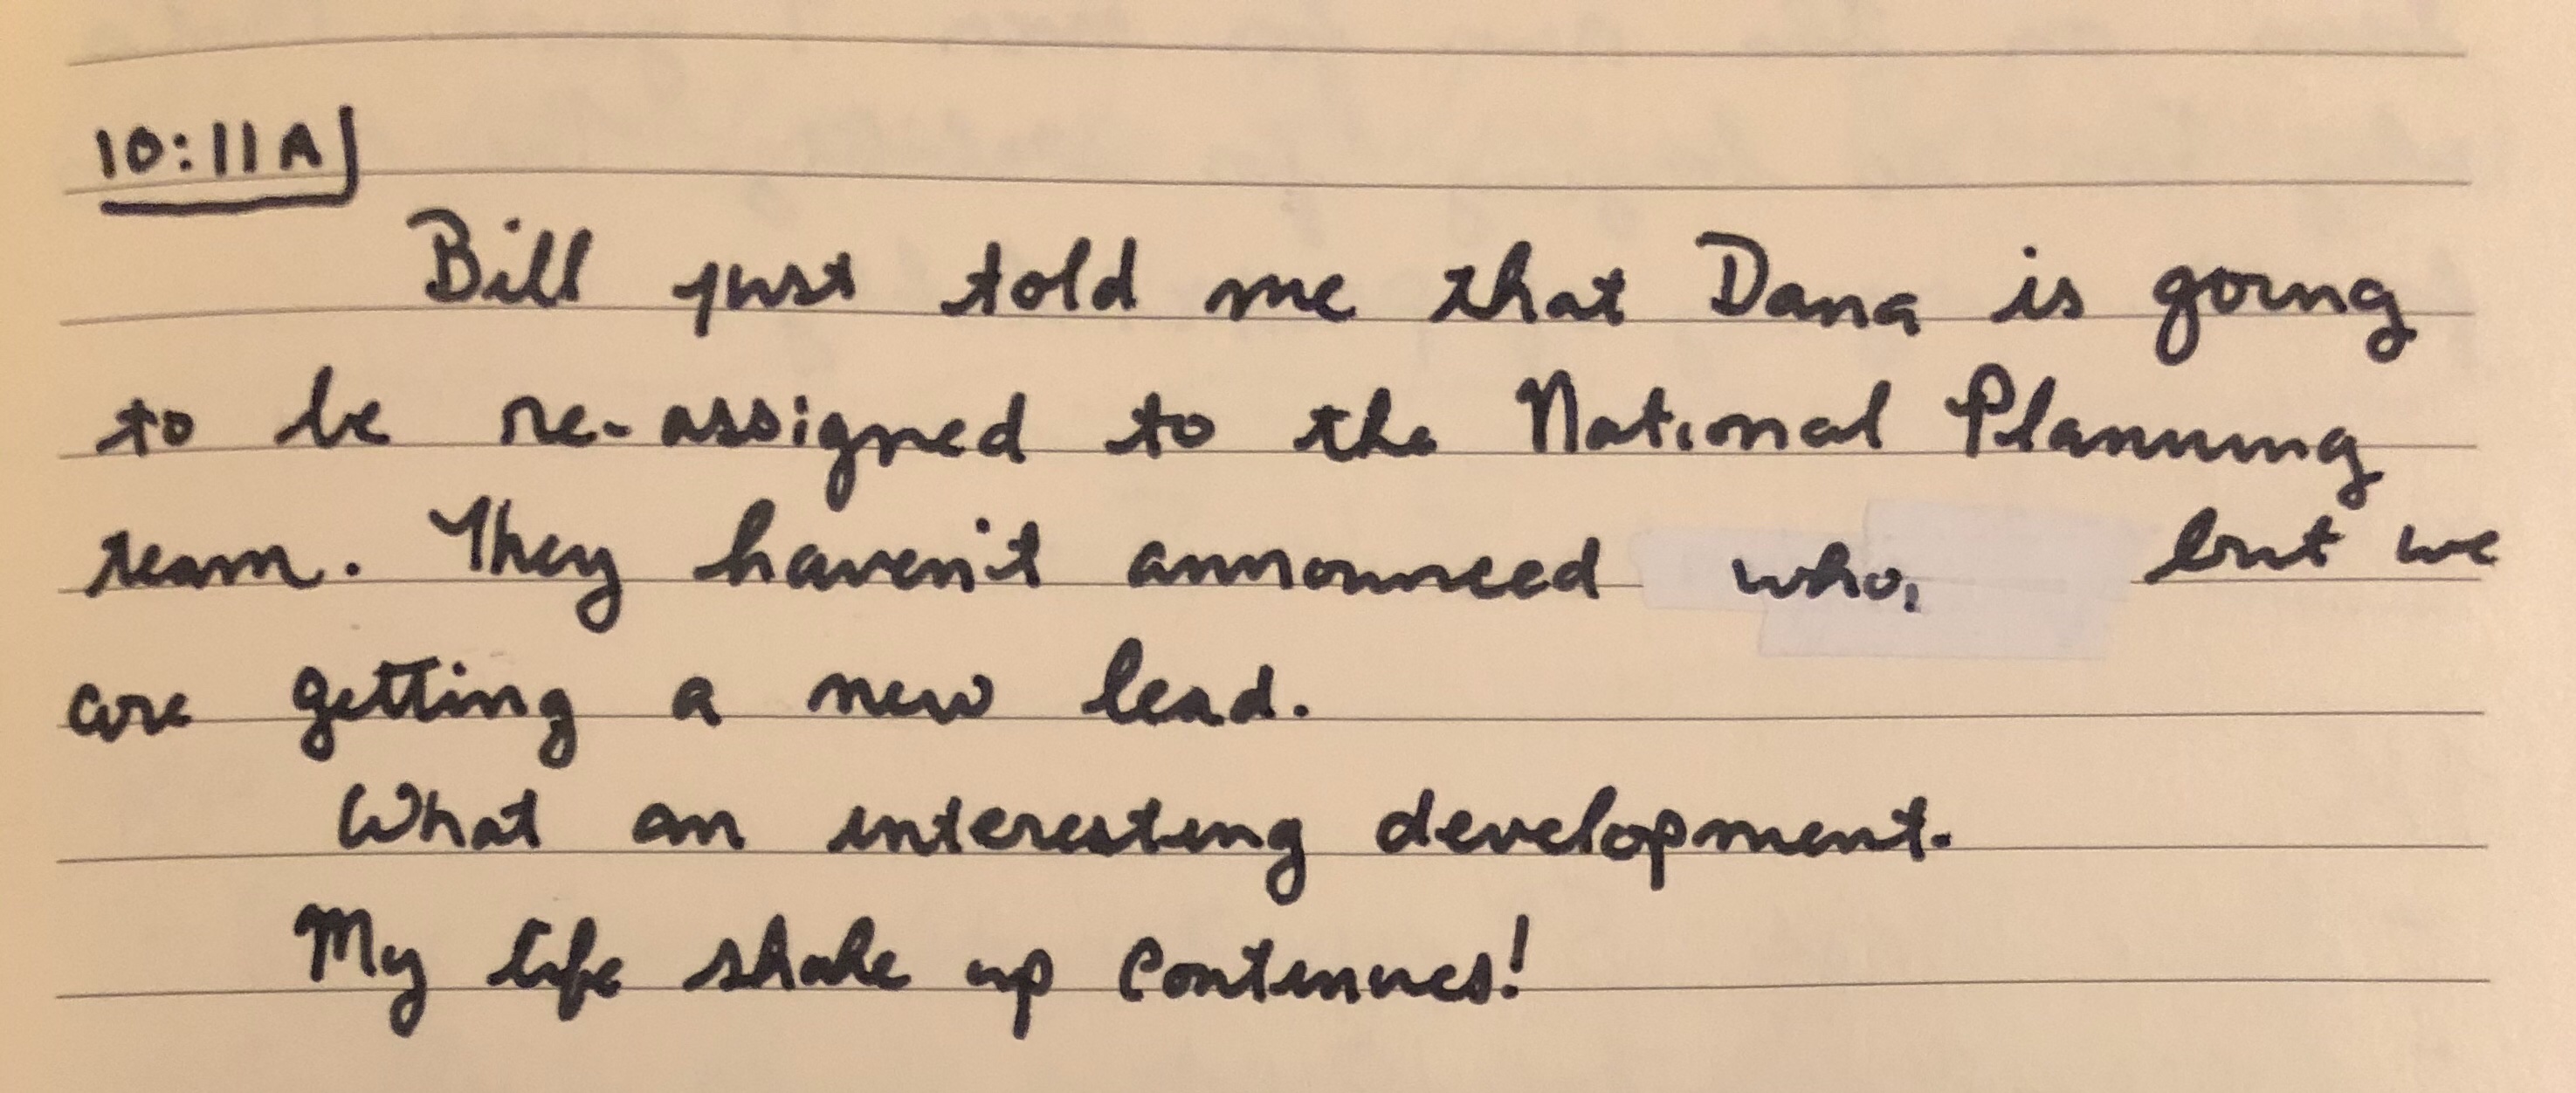 10:11A
Bill just told me that Dana is going
to be re-assigned to the National Planning
team. They haven't announced who, but we
are getting a new lead.
What an interesting development.
My life shake up continues!